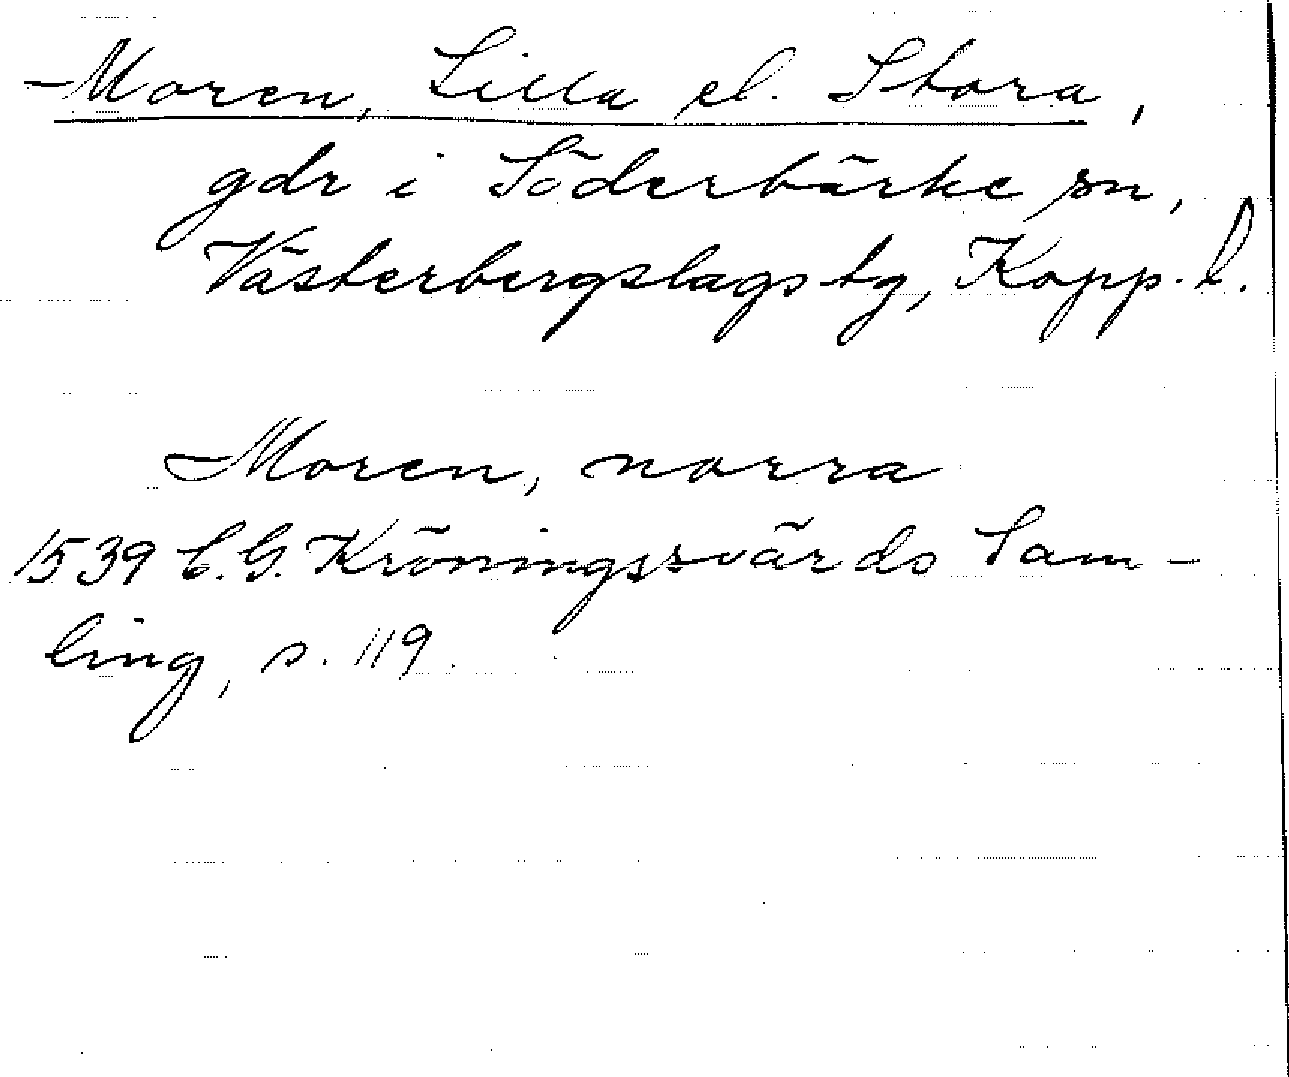 Moren, Lilla el. Stora,
gdr i Söderbärke sn,
Västerbergslags tg, Kopp. l.
Moren, norra
1539 C.G. Kröningssvärds Sam-
ling, s. 119.